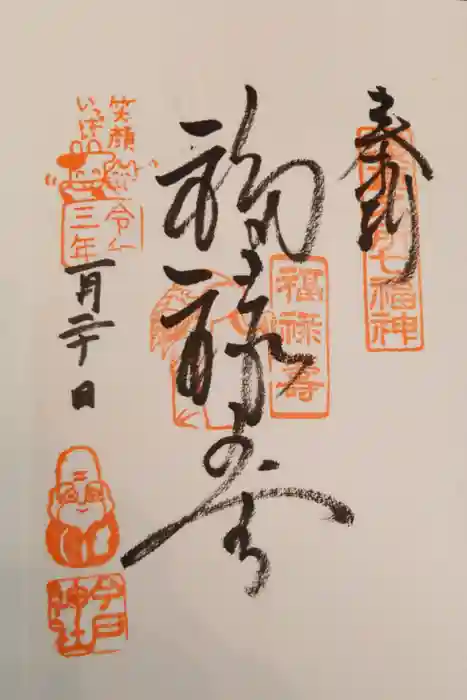 奉拝
七福神
福禄寿
福禄寿
笑顔
いっぱい
令和
三年
一月二十日
今戸
神社